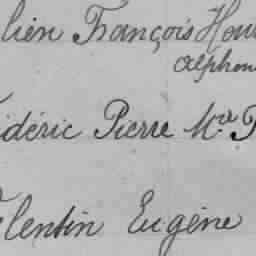 lien François Hen
alphon
édéric Pierre Mie
lentin Eugène